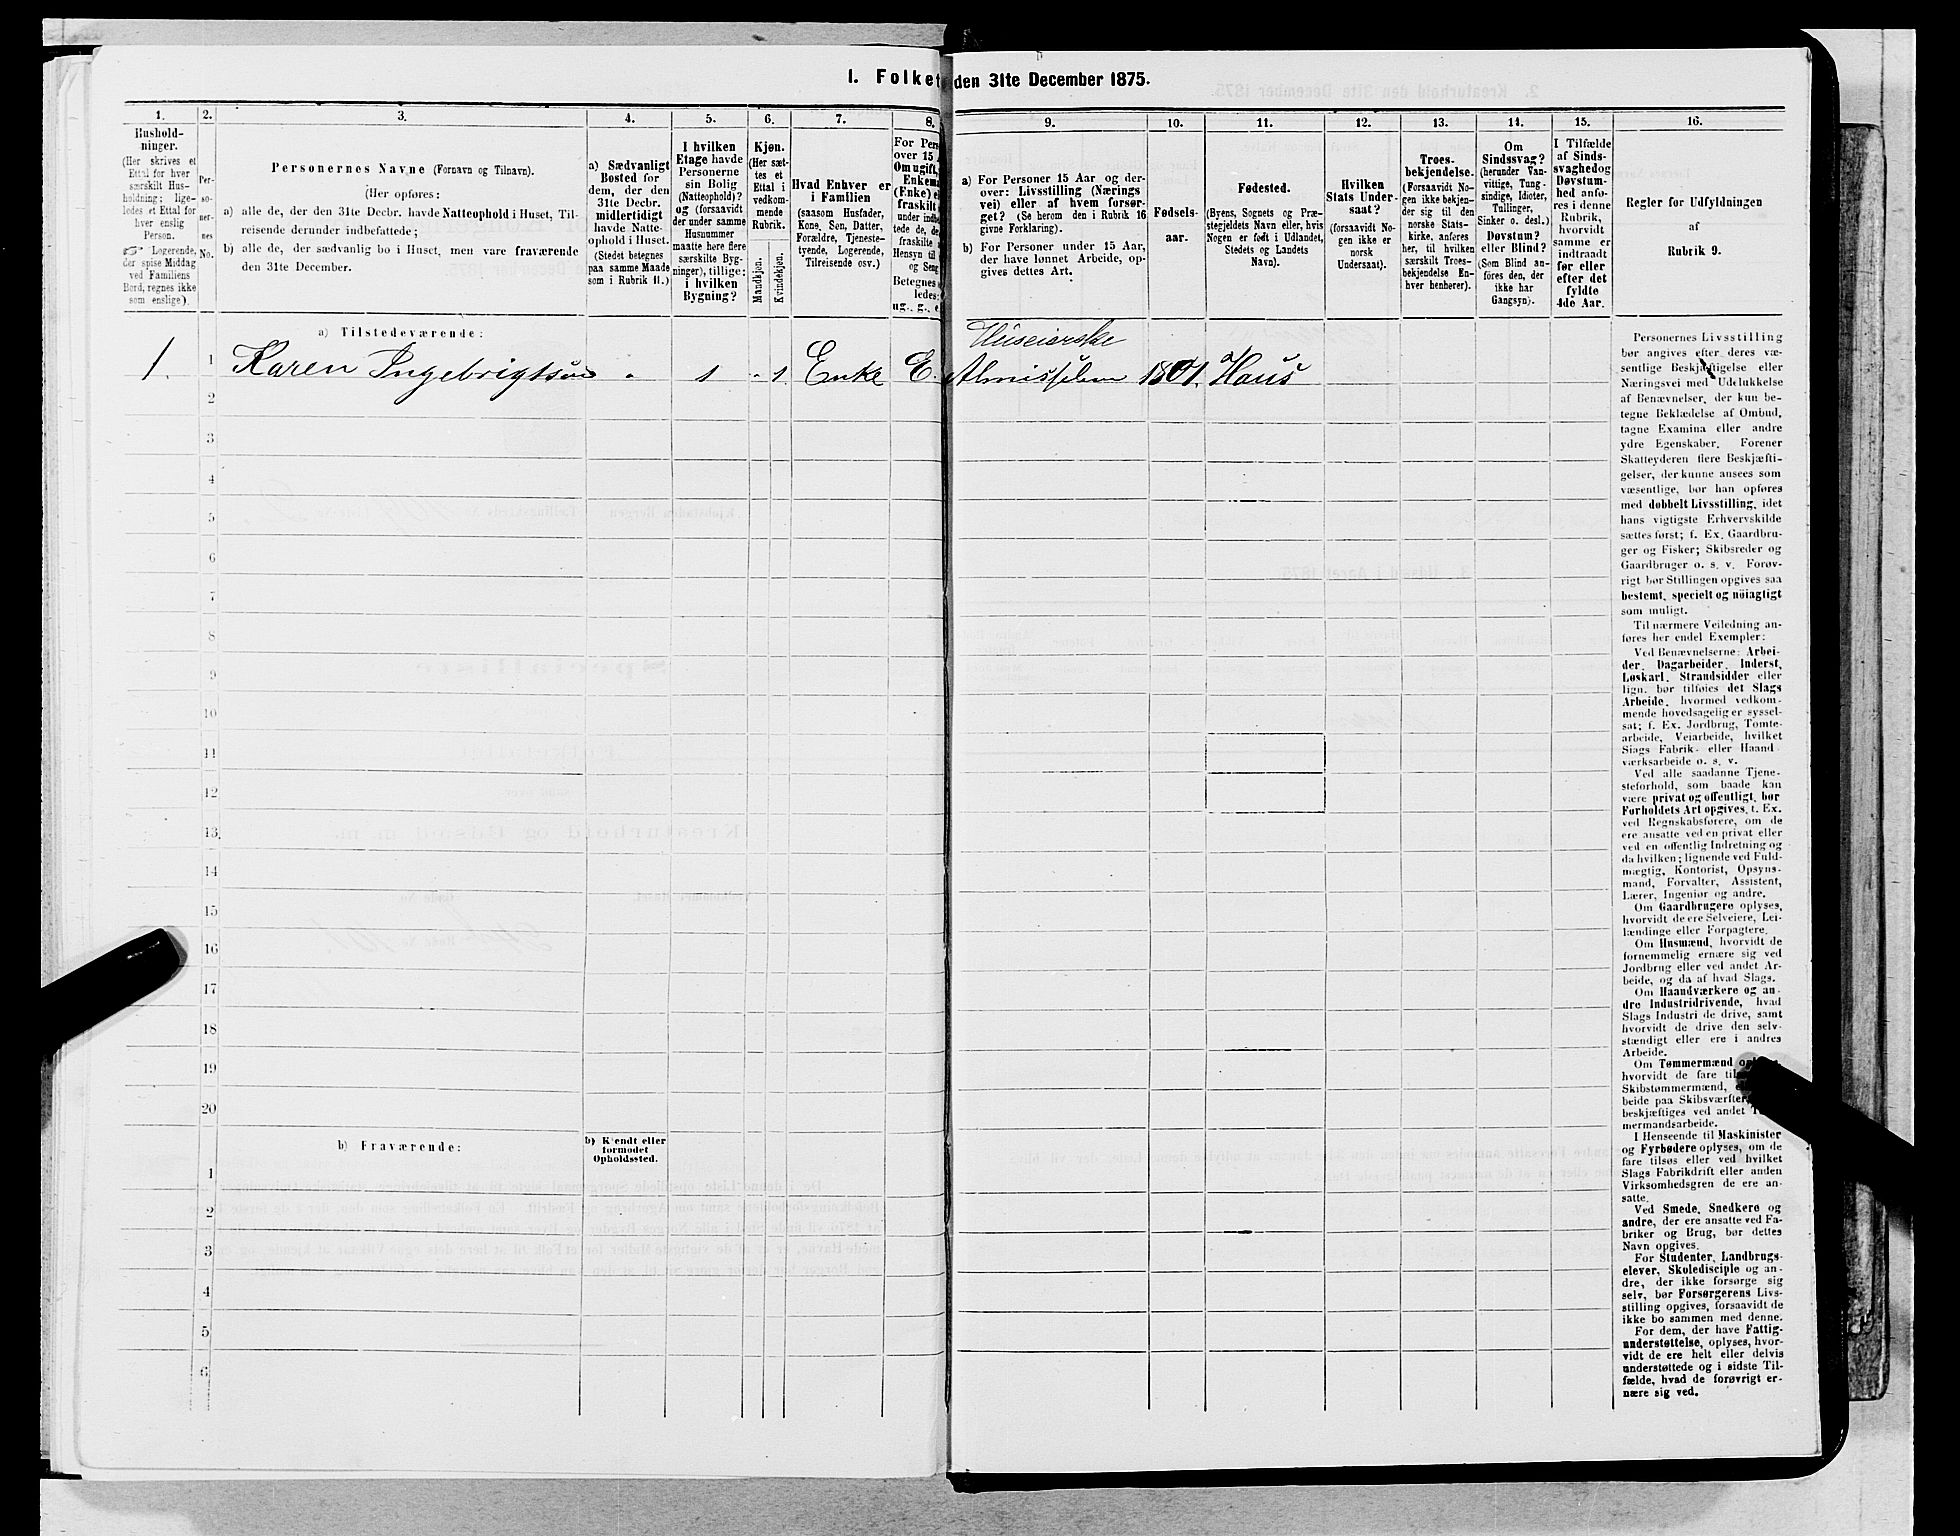 1. Folket den 31te December 1875.
1.
Hushold-
ninger.
(Her skrives et
Ettal for hver
særskilt Hus-
holdning; lige-
ledes et Ettal for
hver enslig
Person.
☞ Logerende,
der spise Middag
ved Familiens
Bord, regnes ikke
som enslige).
2.
Per-
so-
ner-
nes
No.
3.
Personernes Navne (Fornavn og Tilnavn).
(Her opføres:
a) alle de, der den 31te Decbr. havde Natteophold i Huset, Til-
reisende derunder indbefattede;
b) alle de, der sædvanlig bo i Huset, men vare fraværende
den 31te December.
4.
a) Sædvanligt
Bosted for
dem, der den
31te Decbr.
midlertidigt
havde Natte-
ophold i Huset.
(Stedet betegnes
paa samme Maade
som i Rubrik 11.)
5.
I hvilken
Etage havde
Personerne
sin Bolig
(Natteophold)?
og (forsaavidt
der under samme
Husnummer
maatte høre flere
særskilte Byg-
ninger), tillige:
i hvilken
Bygning?
6.
Kjøn.
(Her sæt-
tes et
Ettal i
vedkom-
mende
Rubrik.
Mandkjøn.
Kvindekjøn.
7.
Hvad Enhver er
i Familien
(saasom Husfader,
Kone, Søn, Datter,
Forældre, Tjeneste-
tyende, Logerende,
Tilreisende osv.)
8.
For Pers
over 15 A
Om ugift,
Enkema
(Enke) e
fraskilt
under indbe
tede de, de
fraskilte
Hensyn til
og Seng
Betegnes
ledes:
ug., g., e
9.
a) For Personer 15 Aar og der-
over: Livsstilling (Nærings
vei) eller af hvem forsør-
get? (Se herom den i Rubrik 16
givne Forklaring).
b) For Personer under 15 Aar,
der have lønnet Arbeide, op-
gives dettes Art.
10.
Fødsels-
aar.
11.
Fødested.
(Byens, Sognets og Præ-
stegjeldets Navn eller, hvis
Nogen er født i Udlandet,
Stedets og Landets
Navn).
12.
Hvilken
Stats Under-
saat?
(forsaavidt No-
gen ikke er
norsk
Undersaat).
13.
Troes-
bekjendelse.
(Forsaavidt No-
gen ikke bekjen-
der sig til den
norske Stats-
kirke, anføres
her, til hvilken
særskilt Troes-
bekjendelse En-
hver henhører).
14.
Om
Sindssvag?
(herunder Van-
vittige, Tung-
sindige, Idioter,
Tullinger,
Sinker o. desl.)
Døvstum?
eller Blind?
(Som Blind an-
føres den, der
ikke har
Gangsyn).
15.
I Tilfælde
af Sinds-
svaghed og
Døvstum-
hed anfø-
res i denne
Rubrik,
hvorvidt
samme er
indtraadt
før eller
efter det
fyldte
4de Aar.
16.
Regler for Udfyldningen
af
Rubrik 9.
a) Tilstedeværende:
Huseierske
1. 1 Karen Ingebrigtsøn " 1 " 1 Enke E. Almisselem 1801. Haus
2
3
4
5
6
7
8
9
10
11
12
13
14
15
16
17
18
19
20
b) Fraværende:
b) Kjendt eller
formodet
Opholdssted.
1
2
3
4
5
6
Personernes Livsstilling
bør angives efter deres væ-
sentlige Beskjæftigelse eller
Næringsvei med Udelukkelse
af Benævnelser, der kun be-
tegne Beklædelse af Ombud,
tagne Examina eller andre
ydre Egenskaber. Forener
Skatteyderen flere Beskjæfti-
gelser, der kunne ansees som
væsentlige, bør han opføres
med dobbelt Livsstilling, idet
hans vigtigste Erhvervskilde
sættes først; f. Ex. Gaardbru-
ger og Fisker; Skibsreder og
Gaardbruger o. s. v. Forøv-
rigt bør Stillingen opgives saa
bestemt, specielt og nöiagtigt
som muligt.
Til nærmere Veiledning an-
føres her endel Exempler:
Ved Benævnelserne: Arbei-
der, Dagarbeider, Inderst,
Løskarl, Strandsidder eller
lign. bør tilføies det Slags
Arbeide, hvormed vedkom-
mende hovedsagelig er syssel-
sat; f. Ex. Jordbrug, Tomte-
arbeide, Veiarbeide, hvilket
Slags Fabrik- eller Haand-
værksarbeide o. s. v.
Ved alle saadanne Tjene-
steforhold, som baade kan
være privat og offentligt, bør
Forholdets Art opgives, t. Ex.
ved Regnskabsførere, om de
ere ansatte ved en privat eller
ved en offentlig Indretning og
da hvilken; lignende ved Fuld-
mægtig, Kontorist, Opsyns-
mand, Forvalter, Assistent,
Lærer, Ingeniør og andre.
Om Gaardbrugere oplyses,
hvorvidt de ere Selveiere, Lei-
lændinge eller Forpagtere.
Om Husmænd, hvorvidt de
fornemmelig ernære sig ved
Jordbrug eller ved andet Ar-
beide, og da af hvad Slags.
Om Haandværkere og an-
dre Industridrivende, hvad
Slags Industri de drive, samt
hvorvidt de drive den selv-
stændigt eller ere i andres
Arbeide.
Om Tømmermænd
hvorvidt de fare
Skibstømmermænd,
beide paa Skibsværfter,
beskjæftiges ved andet
mermandsarbeide.
I Henseende til Maskinister
og Fyrbødere oplyses, om de
fare tilsøs eller ved hvilket
Slags Fabrikdrift eller anden
Virksomhedsgren de ere an-
satte.
Ved Smede, Snedkere og
andre, der ere ansatte ved Fa-
briker og Brug, bør dettes
Navn opgives.
For Studenter, Landbrugs-
elever, Skoledisciple og an-
dre, der ikke forsørge sig
selv, bør Forsørgerens Livs-
stilling opgives, forsaavidt de
ikke bo sammen med denne.
For dem, der have Fattig-
understøttelse, oplyses, hvor-
vidt de ere helt eller delvis
understøttede og i sidste Til-
fælde, hvad de forøvrigt er-
nære sig ved.